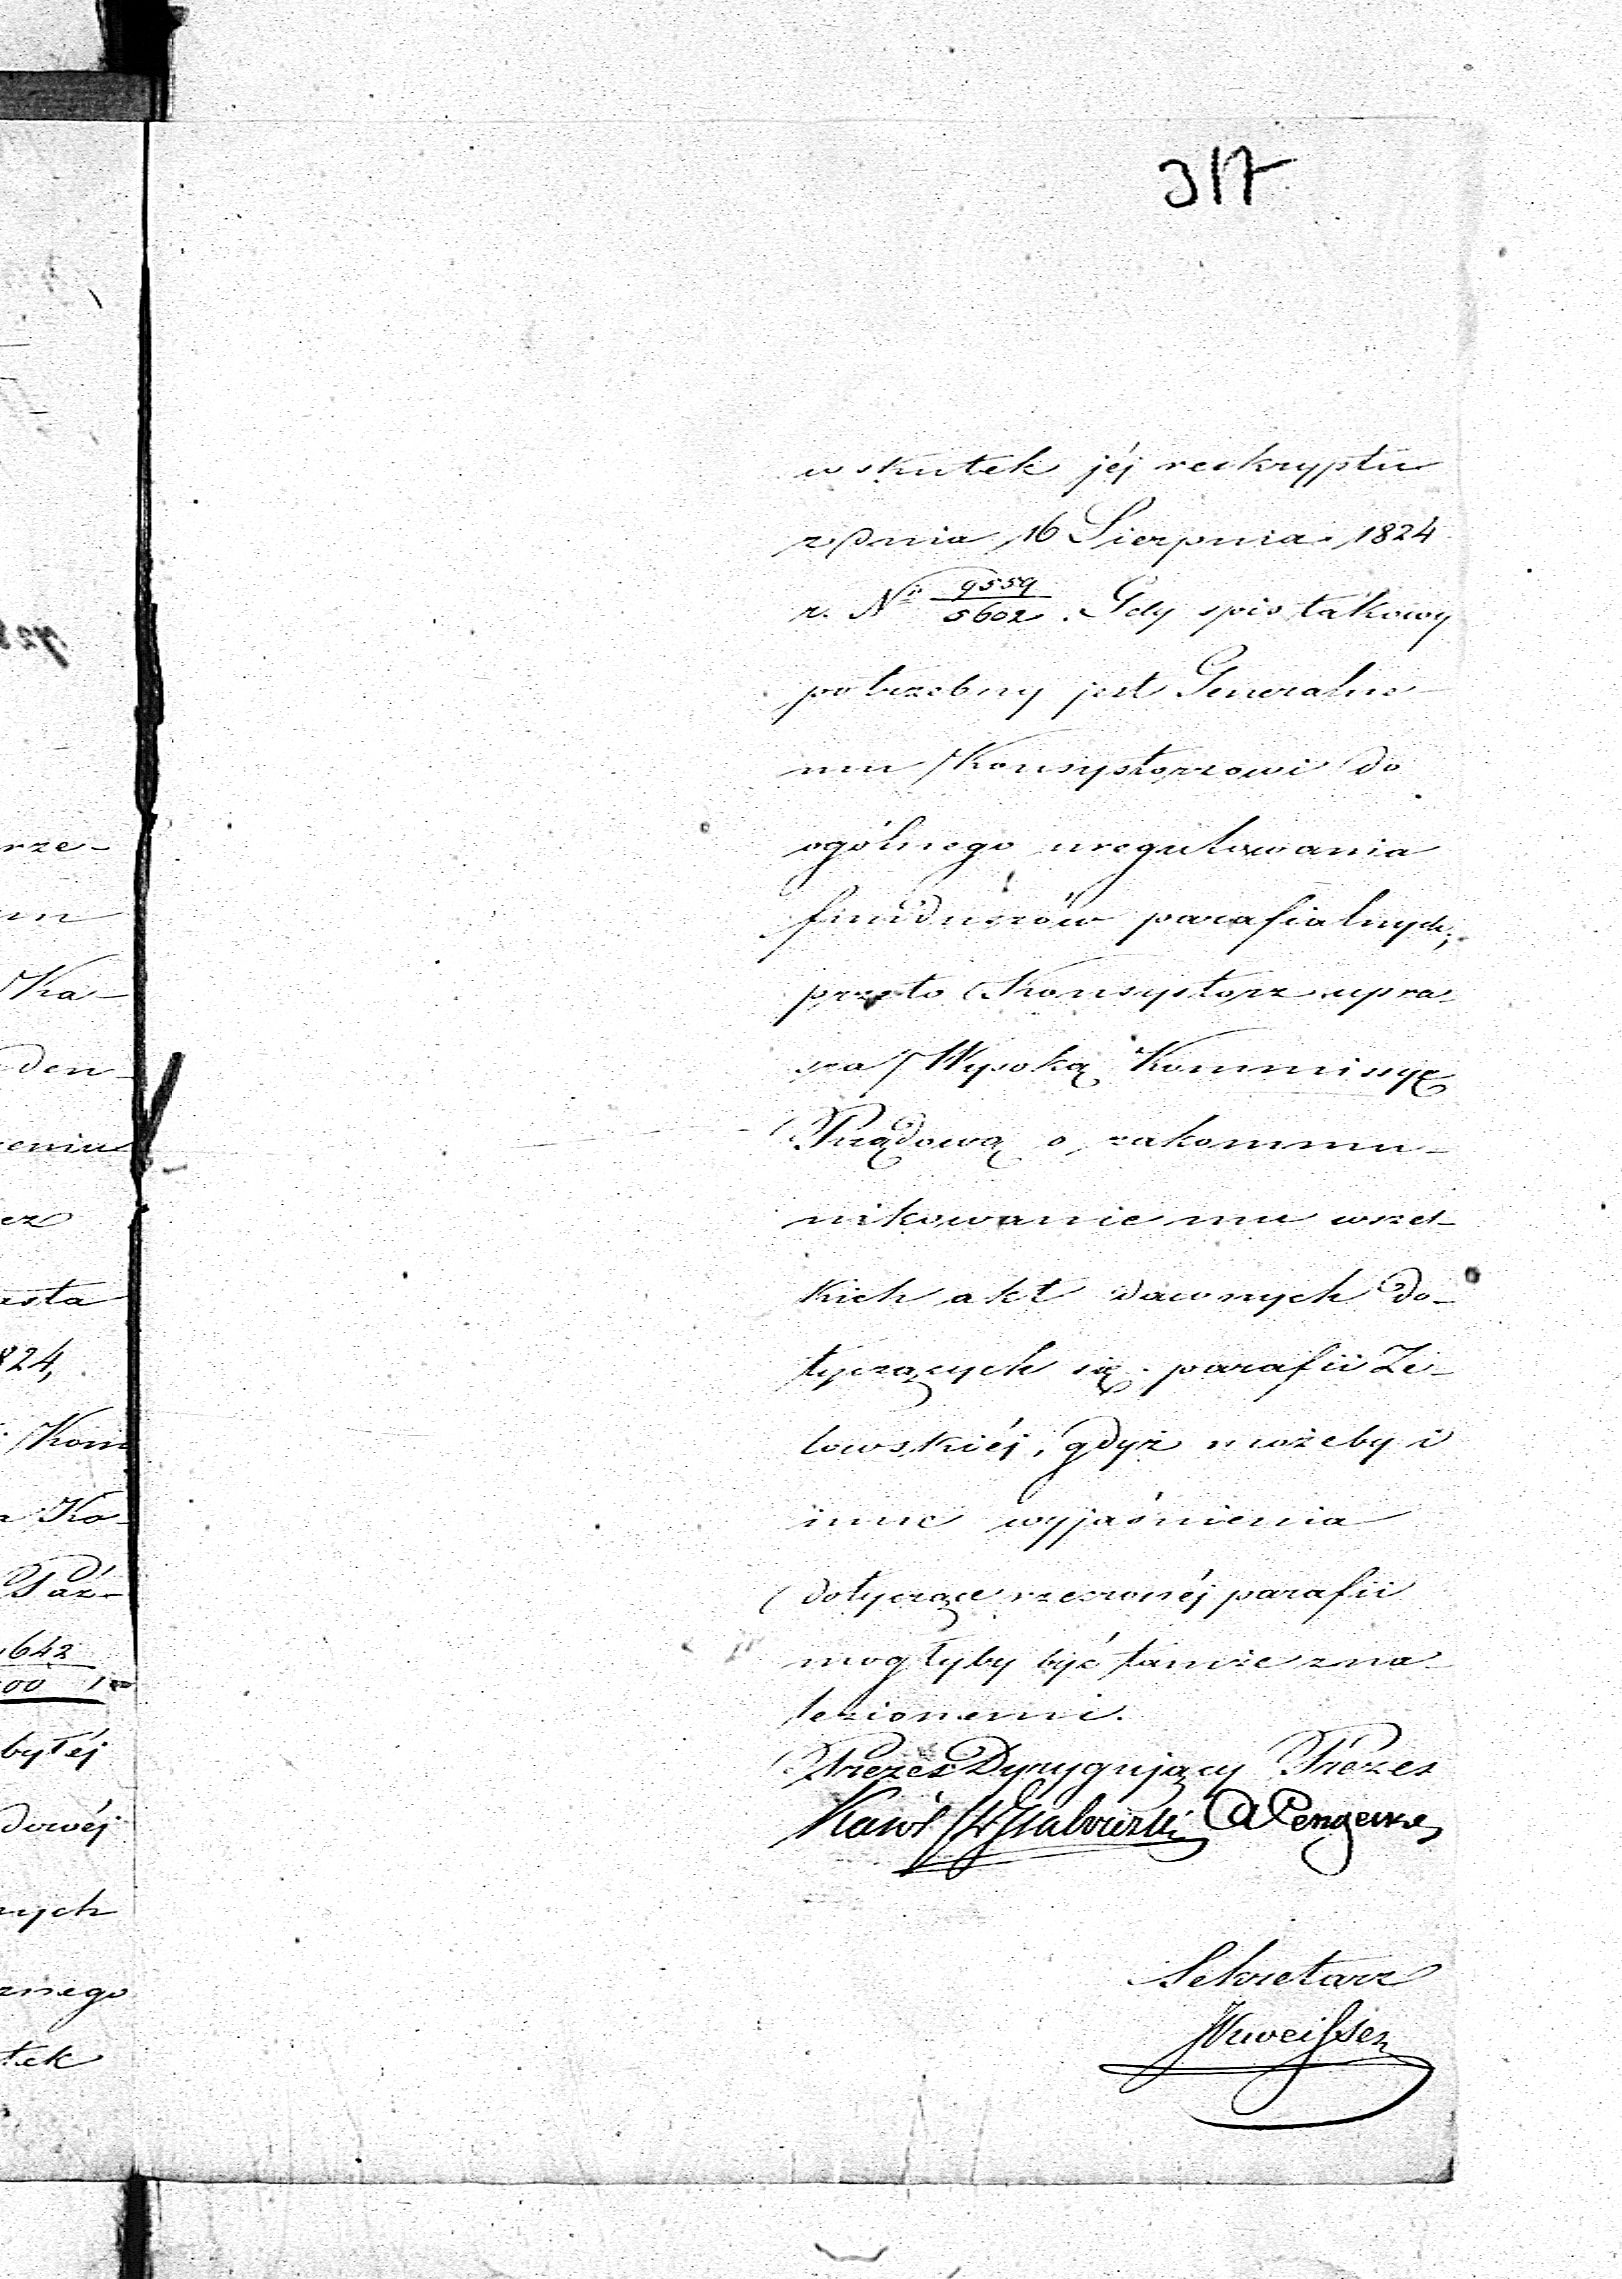 317
wskutek jéj reskryptu
z dnia 16 Sierpnia 1824
r. Nr 9559/5602. Gdy spis takowy
potrzebny jest Generalne-
mu Konsystorzowi do
ogólnego uregulowania
funduszów parafialnych;
przeto Konsystorz upra-
sza Wysoką Kommissyę
Rządową o zakommu-
nikowanie mu wszel-
kich akt dawnych do-
tyczących się parafii Ze-
lowskiéj, gdyż możeby i
inne wyjaśnienia
dotyczące rzeczonéj parafii
mogłyby być tamże zna-
lezionemi.
Prezes Dyrygujący Prezes
Karol
Sekretarz
rze-
Ka-
den-
eniu
ez
asta
824,
Kom
Ko-
Paź-
642
00
byłéj
dowéj
nych
znego
tek